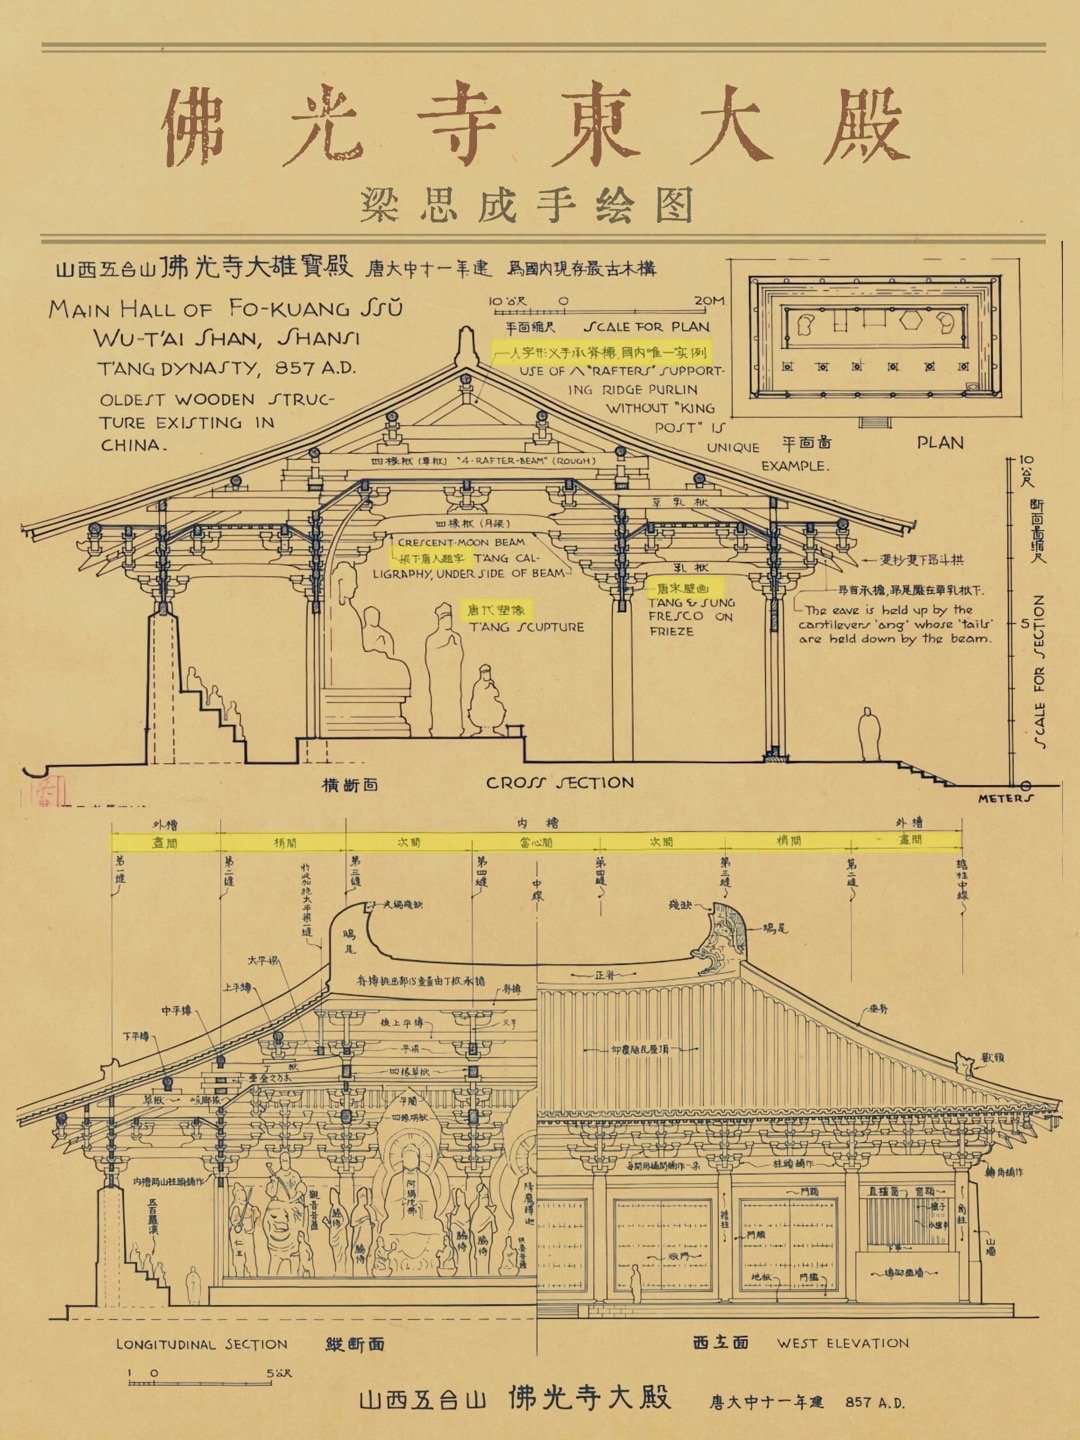 佛光寺東大殿
梁思成手绘图
山西五台山佛光寺大雄寶殿 唐大中十一年建 爲國内現存最古木構
MAIN HALL OF FO-KUANG SSŬ
WU-T'AI SHAN, SHANSI
T'ANG DYNASTY, 857 A.D.
OLDEST WOODEN STRUC-
TURE EXISTING IN
CHINA.
10 公尺 0 20M
平面縮尺 SCALE FOR PLAN
人字形叉手承脊槫,國内唯一实例
USE OF 人 "RAFTERS" SUPPORT-
ING RIDGE PURLIN
WITHOUT "KING
POST" IS
UNIQUE
EXAMPLE.
平面畐 PLAN
四椽栿(草栿) "4-RAFTER-BEAM" (ROUGH)
四椽栿(月梁)
CRESCENT-MOON BEAM
梁下唐人題字 T'ANG CAL-
LIGRAPHY, UNDER SIDE OF BEAM
唐代塑像
T'ANG SCUPTURE
草乳栿
乳栿
唐宋壁画
T'ANG & SUNG
FRESCO ON
FRIEZE
雙抄雙下昂斗栱
昂首承檐,昂尾壓在草乳栿下.
The eave is held up by the
cantilevers 'ang' whose 'tails'
are held down by the beam.
10
公尺
断面畐縮尺
5
SCALE FOR SECTION
0
METERS
橫断面 CROSS SECTION
外槽 内槽 外槽
盡間 梢間 次間 當心間 次間 梢間 盡間
第一縫
第二縫
第三縫
第四縫
中線
第四縫
第三縫
第二縫
檐柱中線
殘缺
鴟尾
鴟尾
正脊
垂脊
獸頭
太平梁
上平槫
中平槫
下平槫
脊槫
叉手
平梁
四椽草栿
丁栿
草栿
平闇
仰覆瓪瓦屋頂
柱頭鋪作
轉角鋪作
五百羅漢
仁王
觀音菩薩
脇侍
脇侍
阿彌陀佛
脇侍
脇侍
降魔釋迦
檐柱
門額
門頰
版門
地栿
門檻
直櫺窗
窗額
角柱
山墻
LONGITUDINAL SECTION 縱断面
西立面 WEST ELEVATION
1 0 5公尺
山西五台山 佛光寺大殿 唐大中十一年建 857 A.D.